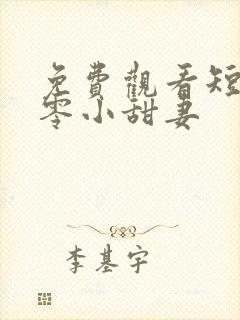 免費觀看短
零小甜妻
李基宇